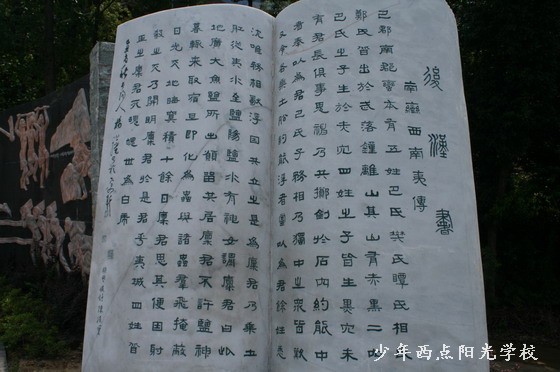 後漢書
南蠻西南夷傳
巴郡南郡蠻本有五姓巴氏樊氏瞫氏相氏
鄭氏皆出於武落鍾離山其山有赤黑二穴
巴氏之子生於赤穴四姓之子皆生黑穴未
有君長俱事鬼神乃共擲劍於石穴約能中
者奉以為君巴氏子務相乃獨中之眾皆歎
又令各乘土船約能浮者當以為君餘姓悉
沈唯務相獨浮因共立之是為廩君乃乘土
船從夷水至鹽陽鹽水有神女謂廩君曰此
地廣大魚鹽所出願留共居廩君不許鹽神
暮輒來取宿旦即化為蟲與諸蟲群飛掩蔽
日光天地晦冥積十餘日廩君思其便因射
殺之天乃開明廩君於是君乎夷城四姓皆
臣之廩君死魂魄世為白虎
少年西点阳光学校